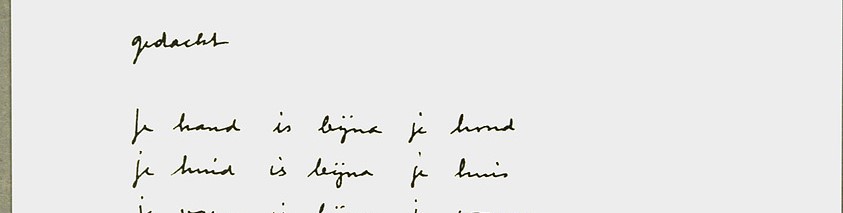 gedacht
Je hand is bijna je hond
je huid is bijna je huis
je is bijna je